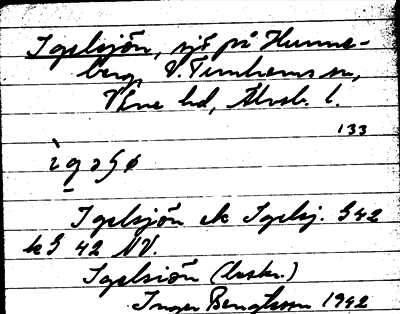 Igelsjön, sjö på Hunne-
berg, V. Tunhems sn,
Väne hd, Älvsb. l.
133
Igelsjön ek Igelsj. G42
k G 42 NV.
Igelsiön (beskr.)
Inger Bengtsson 1942